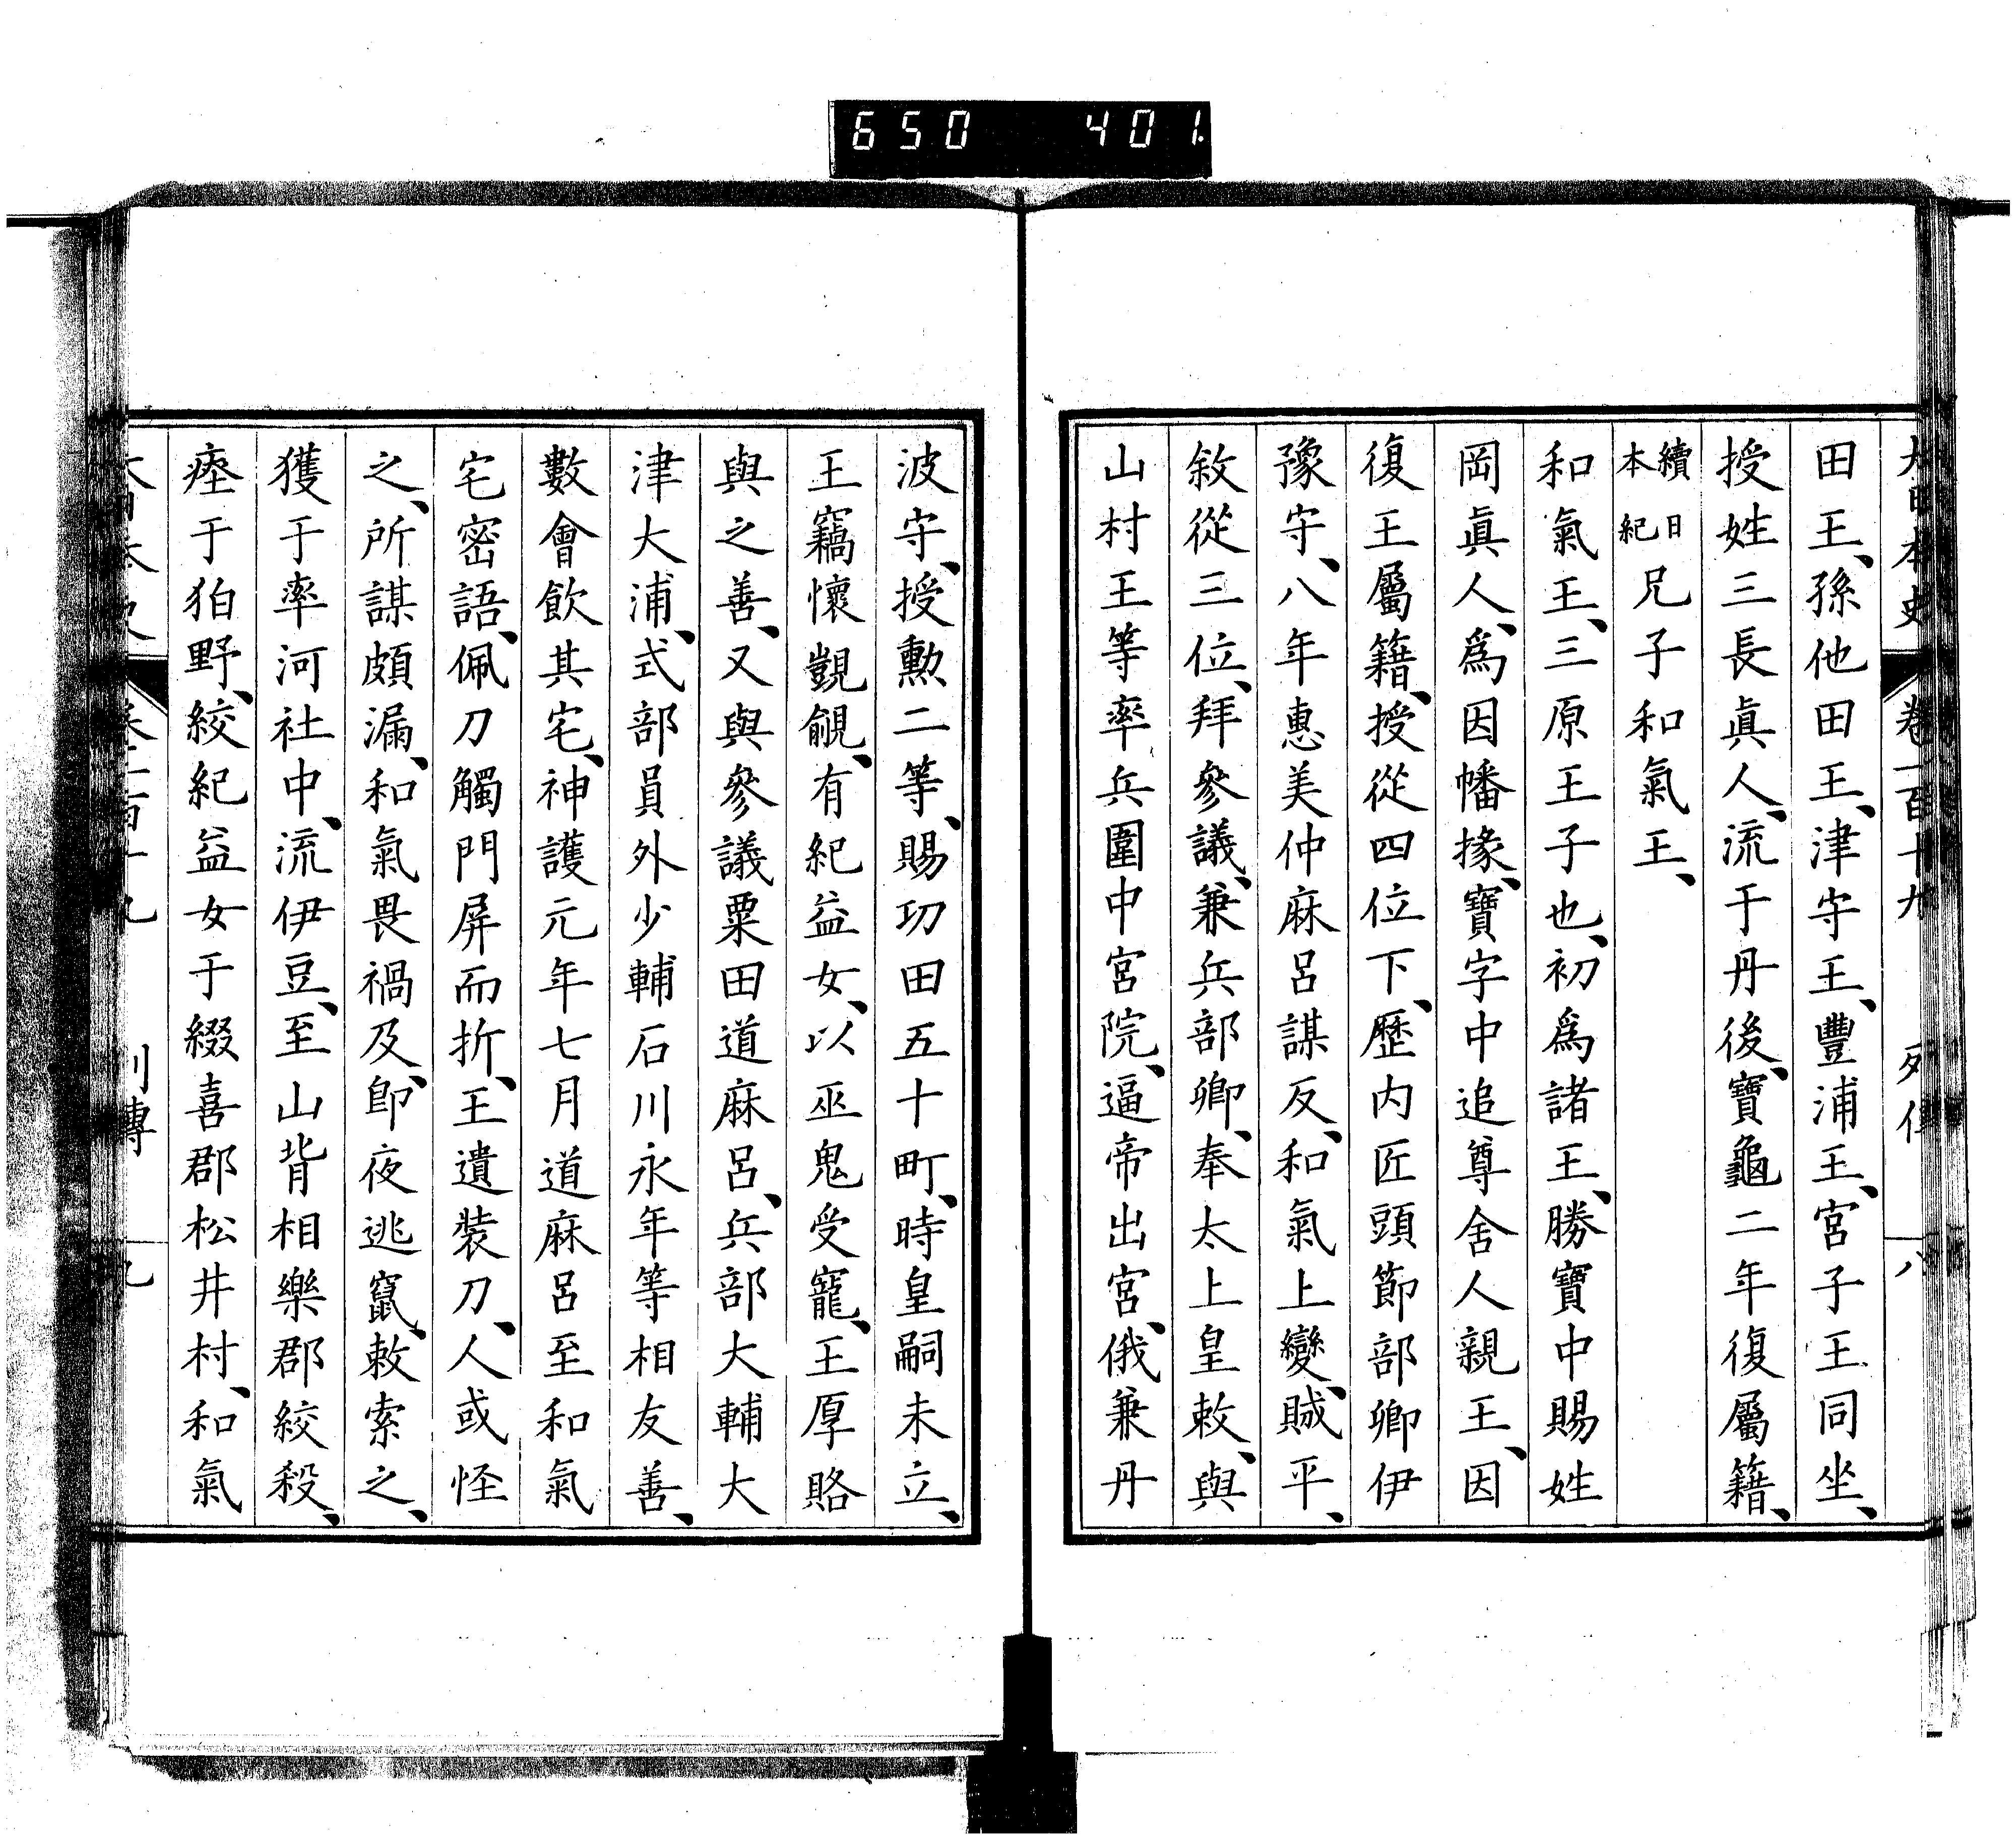 650 401
大日本史 卷一百十九 列傳 八
田王、孫他田王、津守王、豐浦王、宮子王同坐、
授姓三長眞人、流于丹後、寶龜二年復屬籍、
續日本紀兄子和氣王、
和氣王、三原王子也、初爲諸王、勝寶中賜姓
岡眞人、爲因幡掾、寶字中追尊舍人親王、因
復王屬籍、授從四位下、歷内匠頭節部卿伊
豫守、八年惠美仲麻呂謀反、和氣上變、賊平、
敘從三位、拜參議、兼兵部卿、奉太上皇敕、與
山村王等率兵圍中宮院、逼帝出宮、俄兼丹
波守、授勳二等、賜功田五十町、時皇嗣未立、
王竊懷覬覦、有紀益女、以巫鬼受寵、王厚賂
與之善、又與參議粟田道麻呂、兵部大輔大
津大浦、式部員外少輔石川永年等相友善、
數會飲其宅、神護元年七月道麻呂至和氣
宅密語、佩刀觸門屏而折、王遺裝刀、人或怪
之、所謀頗漏、和氣畏禍及、卽夜逃竄、敕索之、
獲于率河社中、流伊豆、至山背相樂郡絞殺、
瘞于狛野、絞紀益女于綴喜郡松井村、和氣